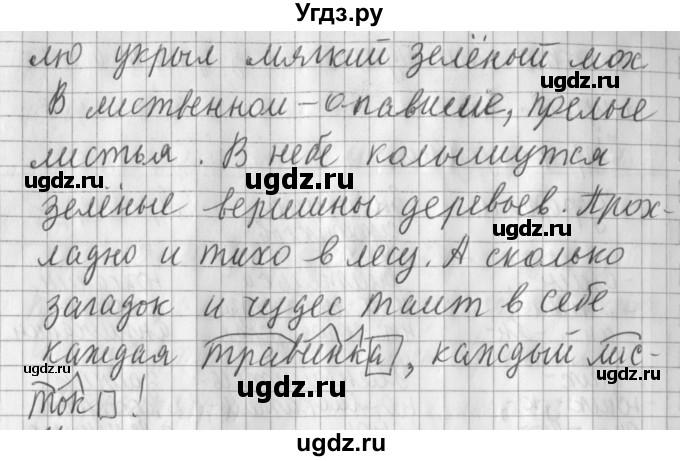 Угдз.ру
лю укрыл мягкий зелёный мох
ugdz.ru
ugdz.ru
В лиственном – опавшие, прелые
ugdz.ru
листья. В небе колышутся
ugdz.ru
ugdz.ru
зелёные вершины деревьев. Прох-
ugdz.ru
ладно и тихо в лесу. А сколько
загадок и чудес таит в себе
ugdz.ru
каждая травинка, каждый лис-
ugdz.ru
ugdz.ru
ток!
ugdz.ru